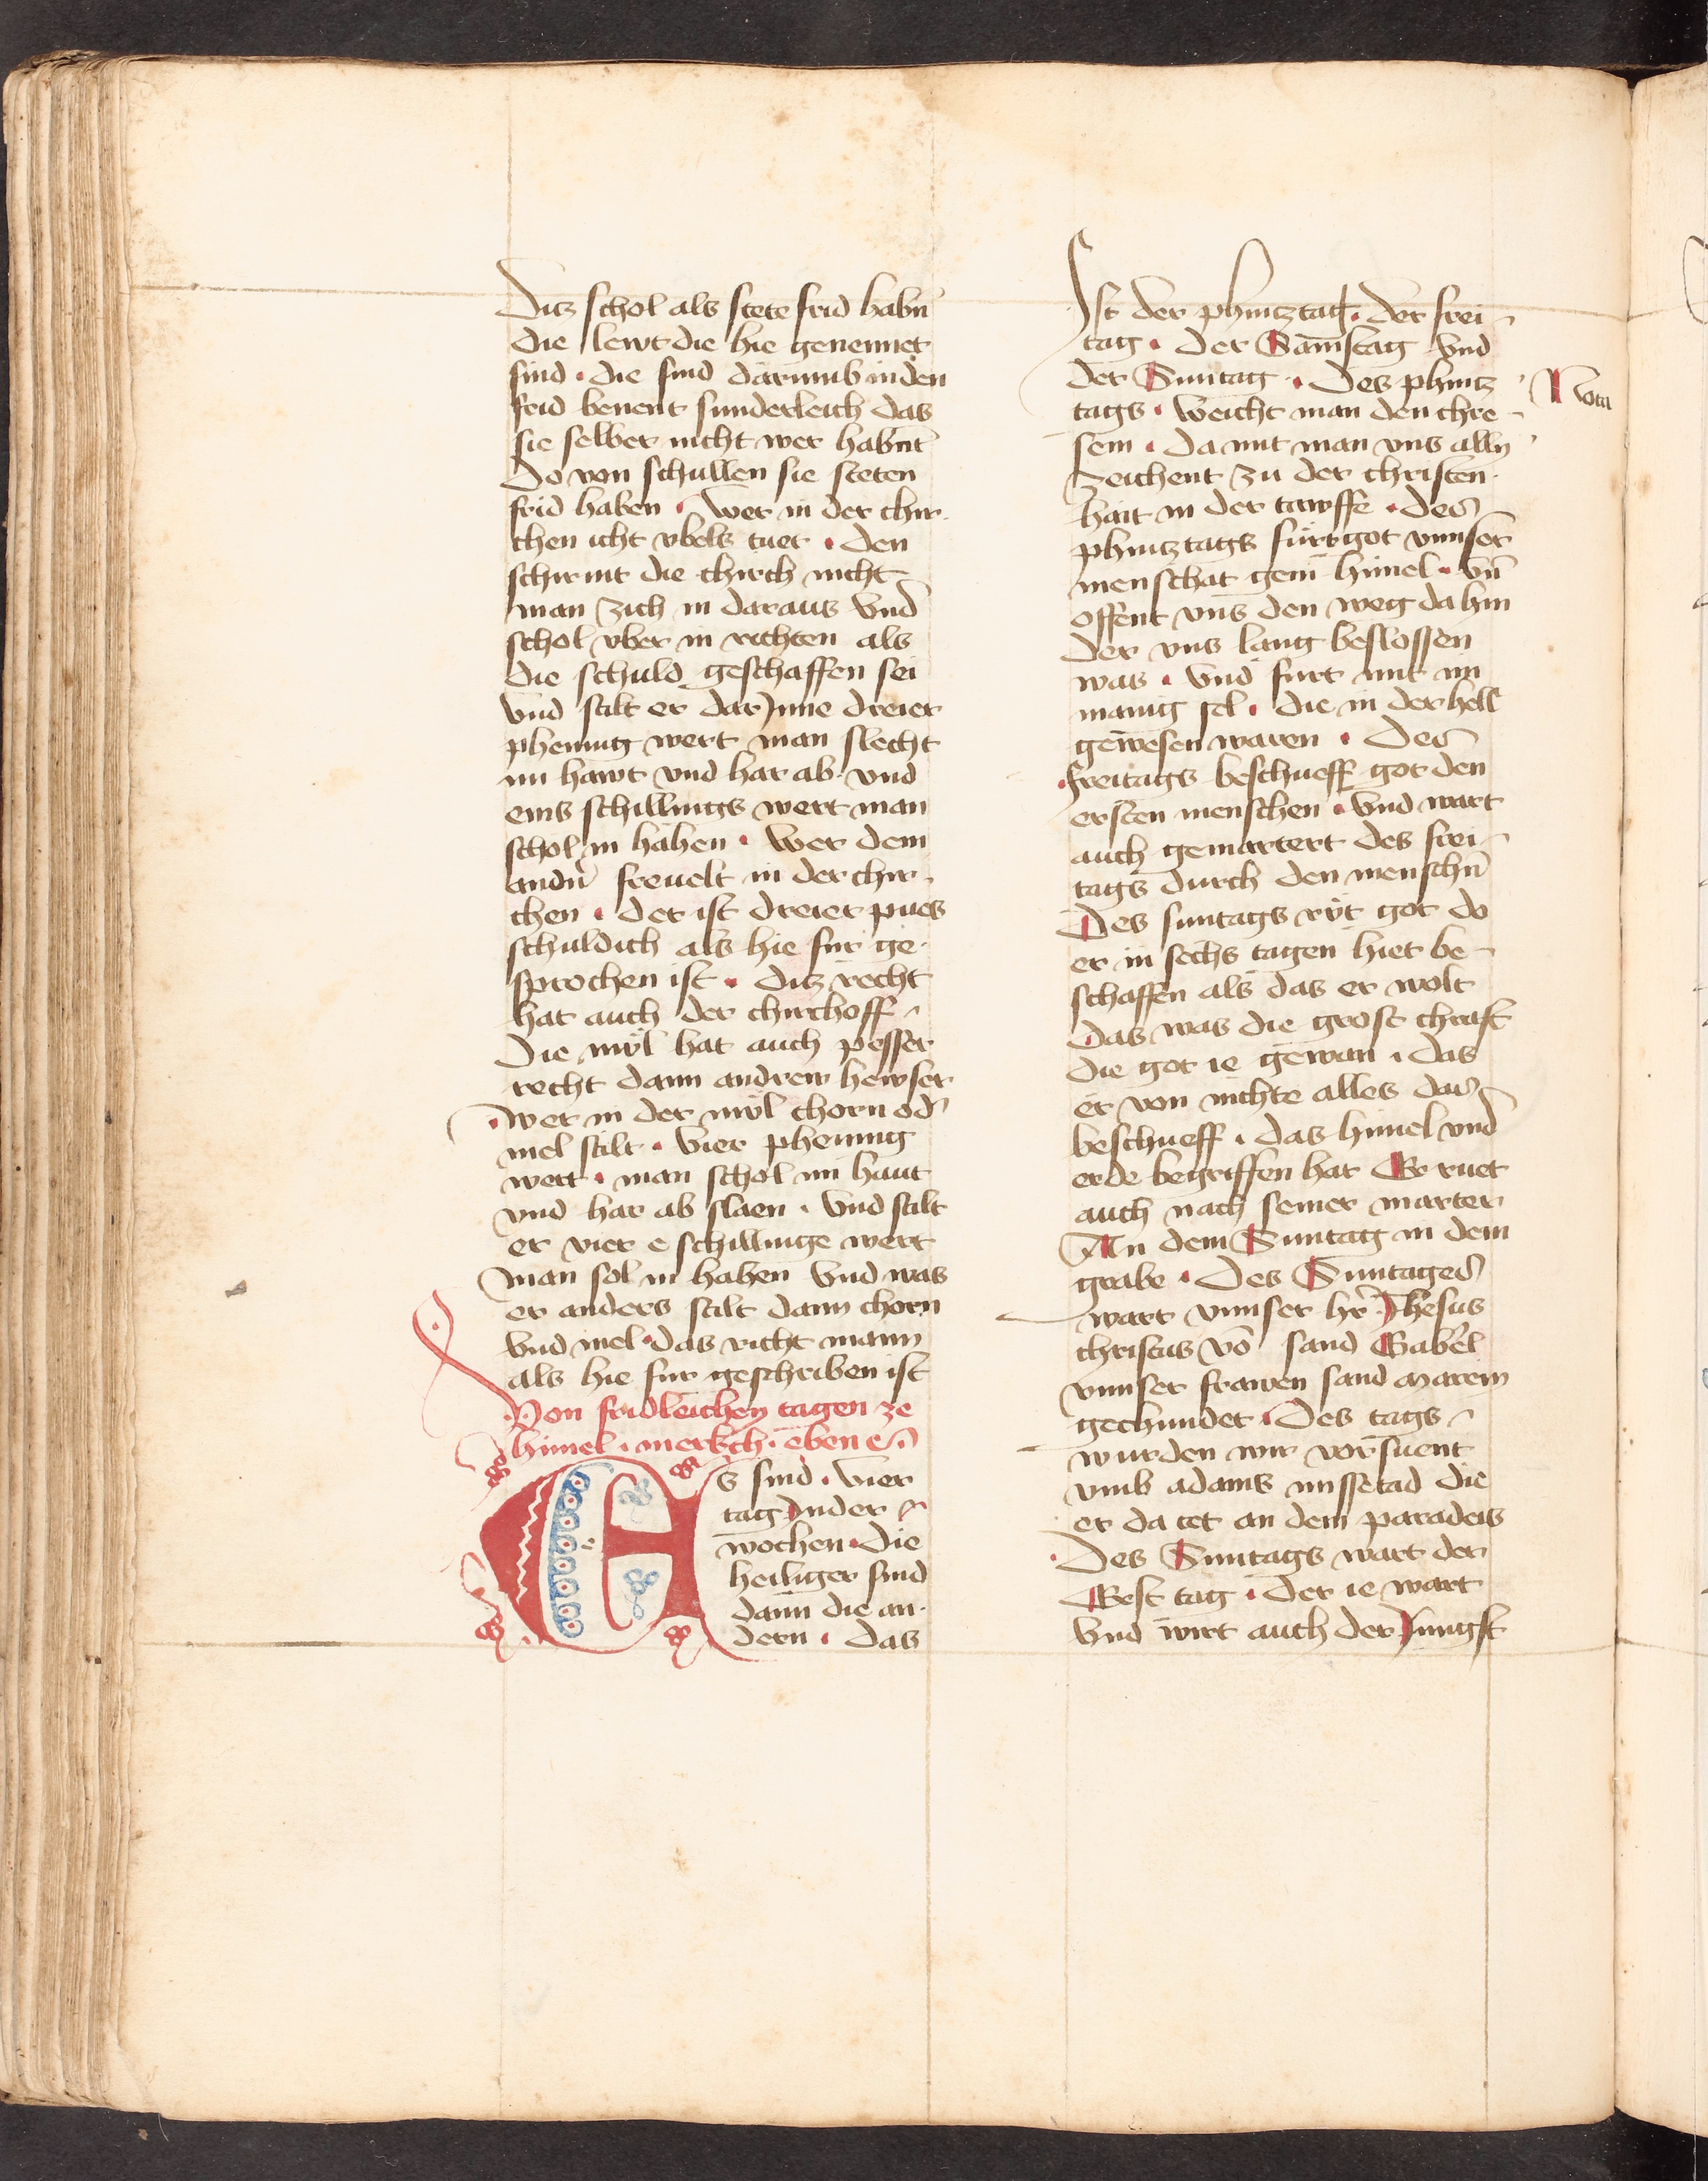 Ditz schol als stete frid habn̄
die lewt die hie genennet
sind · die sind darumb in den
frid benent sunderleich das
sie selber nicht wer habnt
Do von schullen sie steten
frid haben · Wer in der chir-
chen icht vbels tuet · den
schirmt die chirch nicht
man zich in daraus vnd
schol vber in richten als
die schuld geschaffen sei
vnd stilt er dar Jnne dreier
phennig wert man slecht
im hawt vnd har ab · vnd
eins schillings wert man
schol in hahen · Wer dem
andn̄ freuelt in der chir-
chen · der ist dreier pues
schuldich als hie fur ge-
sprochen ist · ditz recht
hat auch der chirchoff
Die mvl hat auch pesser
recht dann andrew hewser
· wer in der mvl chorn od̄
mel stilt · vier phennig
wert · man schol im haut
vnd har ab slaen · vnd stilt
er vier e schillinge wert
man sol in hahen vnd was
er anders stilt dann chorn
vnd mel · das richt mann
als hie fur geschriben ist
Von fridleichen tagen ze
himel · merkch · eben e ·
s sind · vier
tag Jnder
wochen · Die
heiliger sind
dann die an-
dern · das
Ist der phintztag · der frei-
tag · der Samstag vnd
der Suntag · Des phintz
tags · weicht man den chre-
sem · da mit man vns alln
zeichent zu der christen-
hait in der tawffe · des
phintztags furt got vnnser
menschait gein himel · vn̄
offent vns den weg da hin
der vns lang beslossen
was · vnd furt mit im
manig sel · die in der hell
gewesen waren · Des
· freitags beschueff got den
ersten menschen · vnd wart
auch gemartert des frei-
tags durch den menschn̄
Des suntags rvt got do
er in sechs tagen hiet be-
schaffen als das er wolt
das was die grost chraft
die got ie gewan · das
er von nichte alles das
beschueff · das himel vnd
erde begriffen hat Er ruet
auch nach seiner marter
An dem Suntag in dem
grabe · Des Suntages
wart vnnser hr̄ Jhesus
christus vō sand Gabel
vnnser frawen sand marein
gechundet · Des tags
wurden wir vorsuent
vmb adams missetad die
er da tet an dem paradeis
· Des Suntags wart der
Erst tag · der ie wart
vnd wirt auch der Jungst
Nota